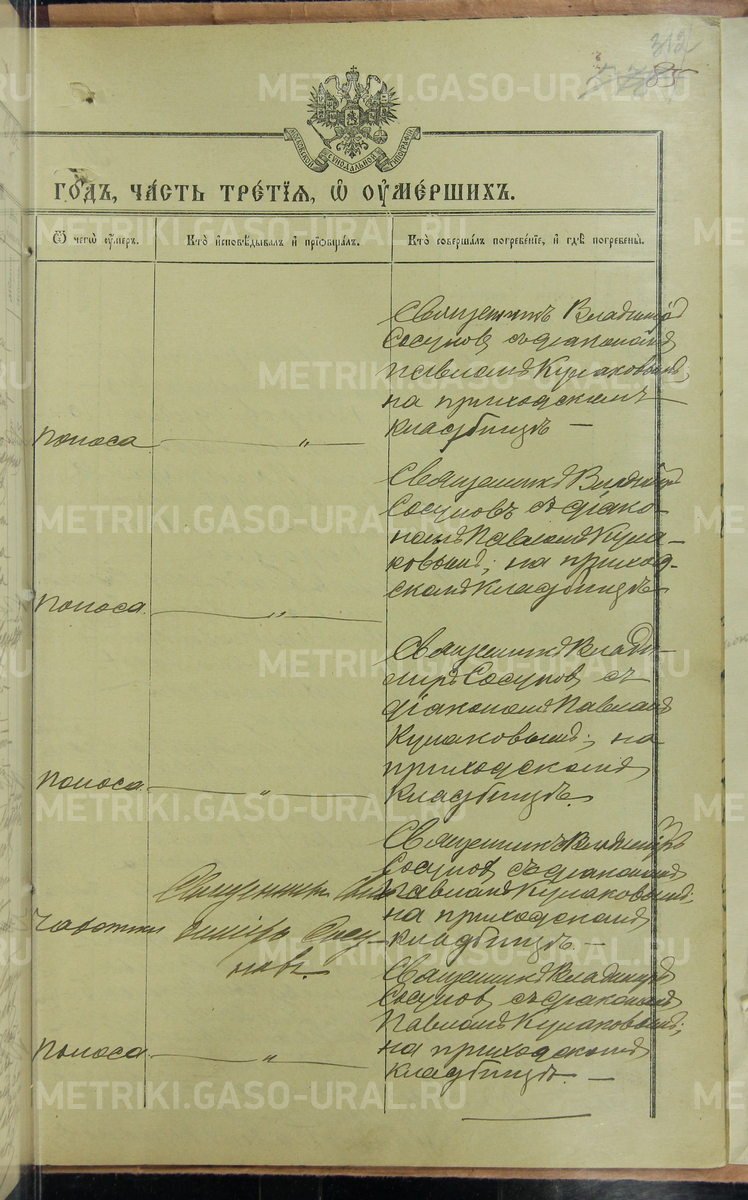 312
85
МОСКОВСКОЙ СѴНОДАЛЬНОЙ ТИПОГРАФІИ
ГОДЪ, ЧАСТЬ ТРЕТІЯ, Ѡ ОУМЕРШИХЪ.
Ѿ чегѡ оумеръ.
Кто исповѣдывалъ и пріобщалъ.
Кто совершалъ погребеніе, и гдѣ погребены.
поноса
"
Священникъ Владиміръ
Сосуновъ съ діакономъ
Павломъ Кулаковымъ;
на приходскомъ
кладбищѣ —
поноса
"
Священникъ Владиміръ
Сосуновъ съ діако-
номъ Павломъ Кула-
ковымъ; на приход-
скомъ кладбищѣ
поноса
"
Священникъ Влади-
міръ Сосуновъ съ
діакономъ Павломъ
Кулаковымъ; на
приходскомъ
кладбищѣ.
чахотки
Священникъ Вла-
диміръ Сосу-
новъ.
Священникъ Владиміръ
Сосуновъ съ діакономъ
Павломъ Кулаковымъ;
на приходскомъ
кладбищѣ —
поноса
"
Священникъ Владиміръ
Сосуновъ съ діакономъ
Павломъ Кулаковымъ;
на приходскомъ
кладбищѣ. —
METRIKI.GASO-URAL.RU